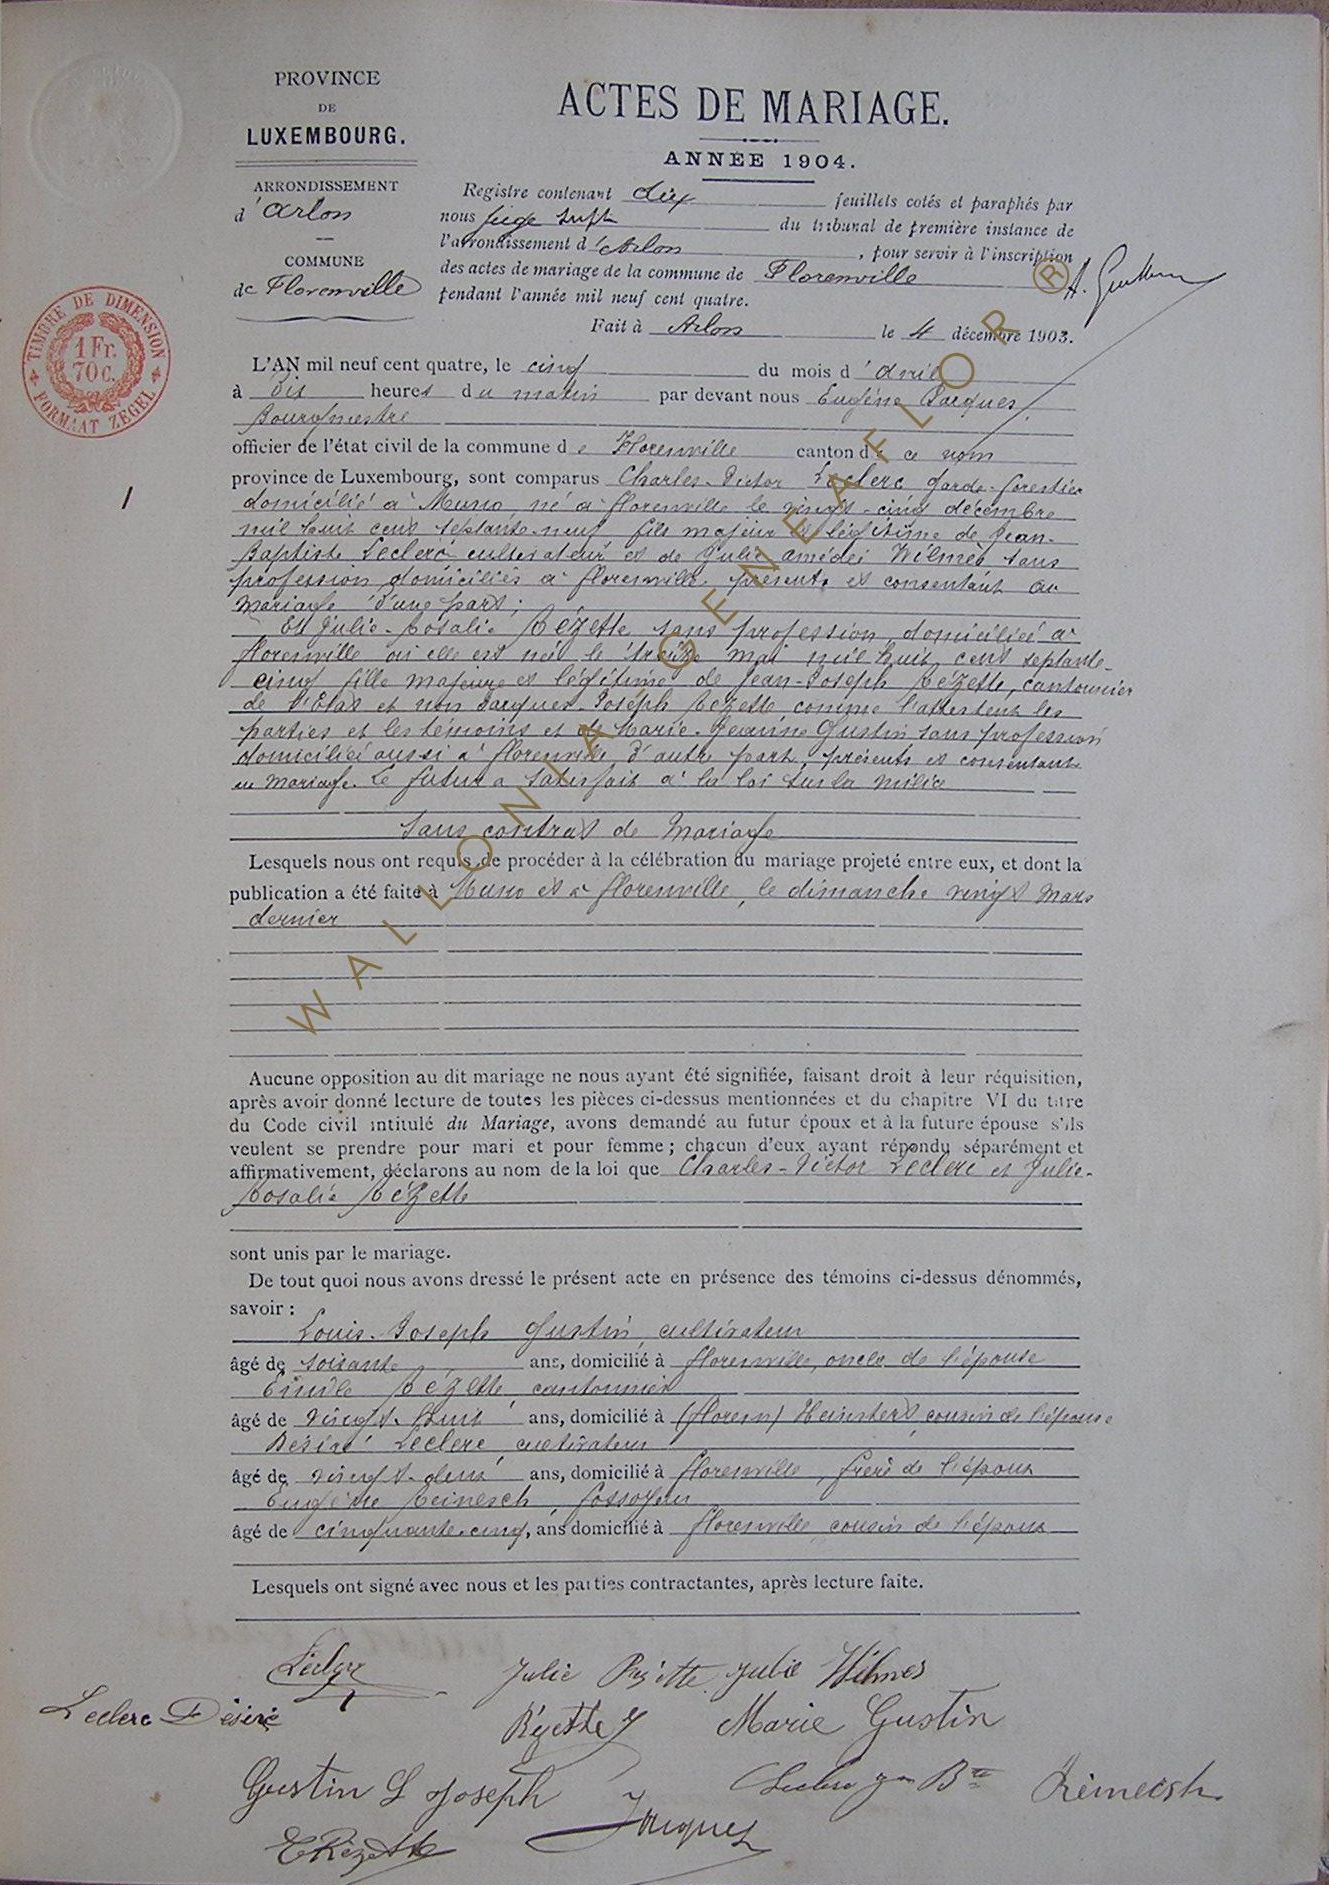 PROVINCE
DE
LUXEMBOURG.
ARRONDISSEMENT
d'Arlon
COMMUNE
de Florenville
TIMBRE DE DIMENSION
1 Fr.
70 c.
FORMAAT ZEGEL
ACTES DE MARIAGE.
ANNÉE 1904.
Registre contenant dix feuillets cotés et paraphés par
nous juge suppt du tribunal de première instance de
l'arrondissement d'Arlon, pour servir à l'inscription
des actes de mariage de la commune de Florenville
pendant l'année mil neuf cent quatre.
Fait à Arlon le 4 décembre 1903.
1
L'AN mil neuf cent quatre, le cinq du mois d'avril
à dix heures du matin par devant nous Eugène Jacques,
Bourgmestre
officier de l'état civil de la commune de Florenville canton de ce nom
province de Luxembourg, sont comparus Charles-Victor Leclerc garde-forestier
domicilié à Muno né à florenville le vingt-cinq décembre
mil huit cent septante-neuf fils majeur et légitime de Jean-
Baptiste Leclerc cultivateur et de Julie amédée Wilmes sans
profession domiciliés à florenville, présents et consentant au
mariage d'une part;
Et Julie-Rosalie Rézette, sans profession, domiciliée à
florenville où elle est née le treize mai mil huit cent septante-
cinq fille majeure et légitime de Jean-Joseph Rézette, cantonnier
de l'Etat et non Jacques-Joseph Rézette comme l'attestent les
parties et les témoins et de Marie-Jeanne Gustin sans profession
domiciliés aussi à florenville, d'autre part, présents et consentant
au mariage. Le futur a satisfait à la loi sur la milice
Sans contrat de mariage
Lesquels nous ont requis de procéder à la célébration du mariage projeté entre eux, et dont la
publication a été faite à Muno et à florenville, le dimanche vingt mars
dernier
Aucune opposition au dit mariage ne nous ayant été signifiée, faisant droit à leur réquisition,
après avoir donné lecture de toutes les pièces ci-dessus mentionnées et du chapitre VI du titre
du Code civil intitulé du Mariage, avons demandé au futur époux et à la future épouse s'ils
veulent se prendre pour mari et pour femme; chacun d'eux ayant répondu séparément et
affirmativement, déclarons au nom de la loi que Charles-Victor Leclerc et Julie-
Rosalie Rézette
sont unis par le mariage.
De tout quoi nous avons dressé le présent acte en présence des témoins ci-dessus dénommés,
savoir :
Louis-Joseph Gustin, cultivateur
âgé de soixante ans, domicilié à florenville, oncle de l'épouse
Emile Rézette, cantonnier
âgé de vingt-huit ans, domicilié à (floren) cousin de l'épouse
Désiré Leclerc, cultivateur
âgé de vingt-deux ans, domicilié à florenville, frère de l'époux
Eugène Reinesch, fossoyeur
âgé de cinquante-cinq, ans domicilié à florenville cousin de l'époux
Lesquels ont signé avec nous et les parties contractantes, après lecture faite.
Leclerc Julie Rézette Julie Wilmes
Leclerc Désiré Rézette J Marie Gustin
Gustin L Joseph Leclerc Jean Bte
E Rézette Jacques
WALLONIA GENEAFLOR ®